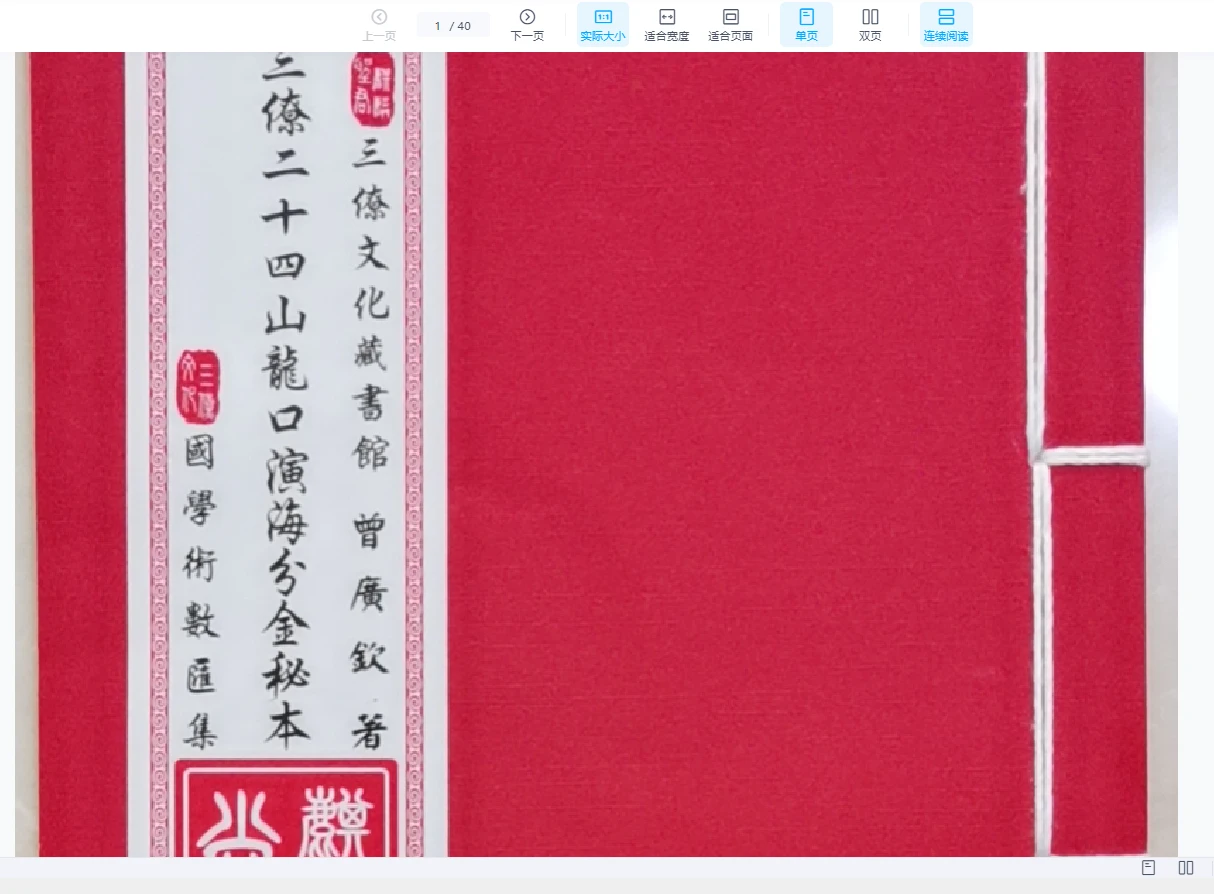 上一页
1 / 40
下一页
实际大小
适合宽度
适合页面
单页
双页
连续阅读
三僚文化藏書館 曾廣欽 著
三僚二十四山龍口演海分金秘本
三僚
文化
國學術數匯集
麒